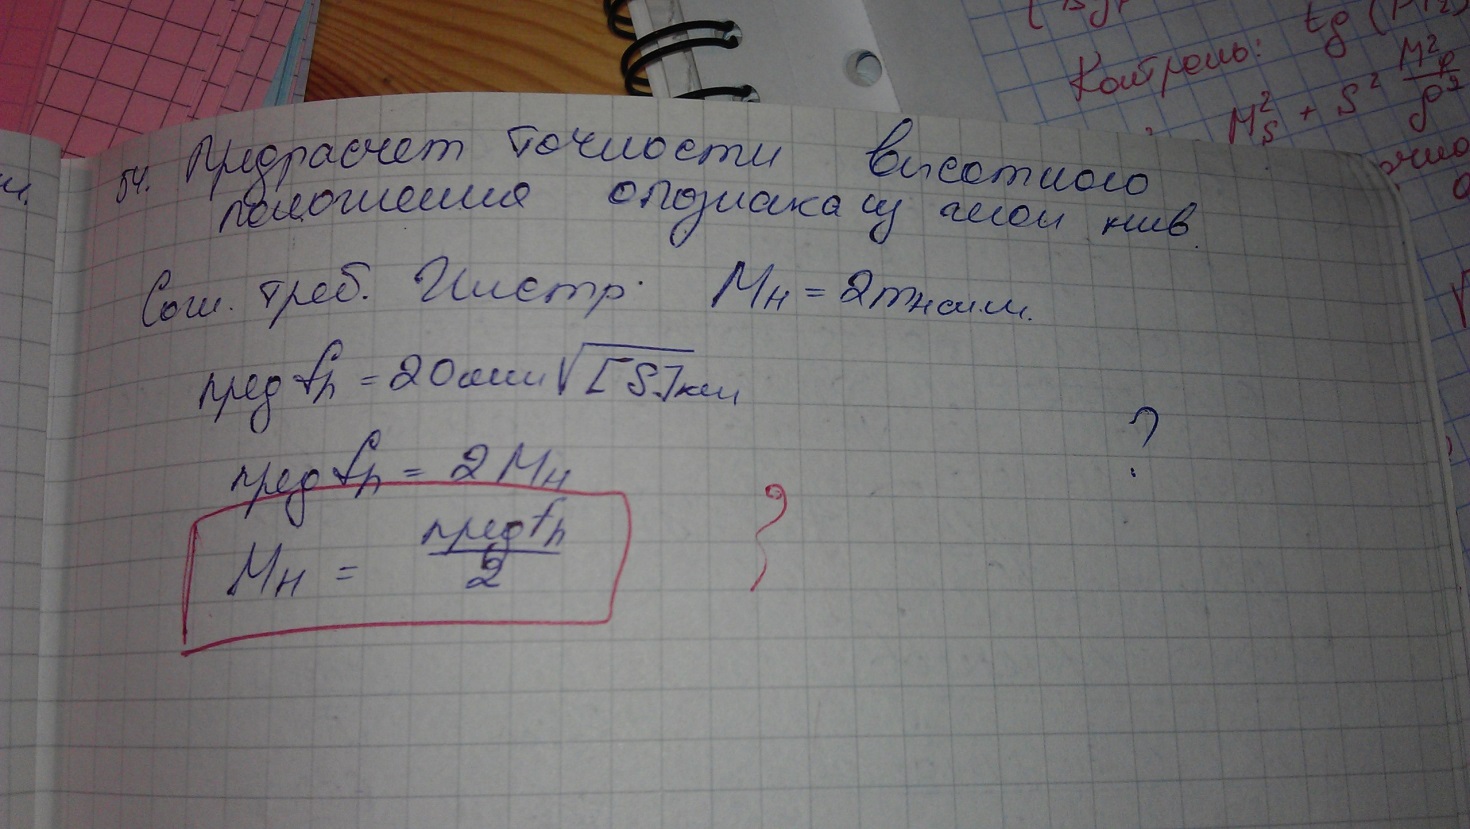 Контроль: tg (
M²s + S² M²β / ρ²
54. Предрасчет точности высотного
положения опознака из геом нив.
Согл. треб. Инстр. Mн = 2mнслм.
пред fh = 20мм √[S]км
?
пред fh = 2 Mн
Mн = пред fh / 2
?